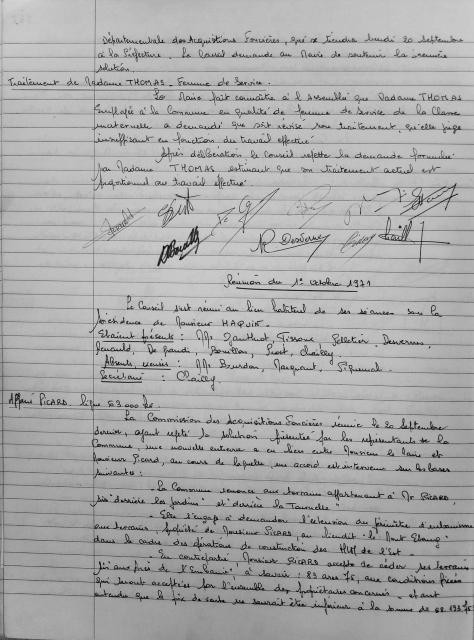 Départementale des Acquisitions Foncières, qui se tiendra lundi 20 Septembre
à la Préfecture. Le Conseil demande au Maire de soutenir la première
solution.
Traitement de Madame THOMAS. Femme de Service.
Le Maire fait connaître à l'Assemblée que Madame THOMAS
Employée à la Commune en qualité de femme de Service de la Classe
maternelle a demandé que soit révisé son traitement, qu'elle juge
insuffisant en fonction du travail effectué.
Après délibération le Conseil rejette la demande formulée
par Madame THOMAS estimant que son traitement actuel est
proportionnel au travail effectué.
Réunion du 1er octobre 1971
Le Conseil s'est réuni au lieu habituel de ses séances sous la
présidence de Monsieur HAQUIN.
Etaient présents : MM. Tissoux, Pelletier, Desvernes,
Bouillon, Chailly.
Absents, excusés : MM. Bourdon,
Secrétaire : Chailly
Affaire PICARD.
La Commission des Acquisitions Foncières réunie le 20 Septembre
dernier, ayant rejeté la solution présentée par les représentants de la
Commune, une nouvelle entrevue a eu lieu entre Monsieur le Maire et
Monsieur Picard, au cours de laquelle un accord est intervenu sur les bases
suivantes :
- La Commune renonce aux terrains appartenant à Mr PICARD,
sis "derrière les Jardins" et "derrière la
- Elle s'engage à demander l'extension du périmètre d'urbanisme
aux terrains, propriété de Monsieur PICARD, au lieudit
dans le cadre des opérations de construction des HLM de l'Est.
- En contrepartie Monsieur PICARD accepte de céder ses terrains
à savoir : 83 ares 75, aux conditions fixées
qui seront acceptées par l'ensemble des propriétaires concernés, étant
entendu que le prix de vente ne saurait être inférieur à la somme de